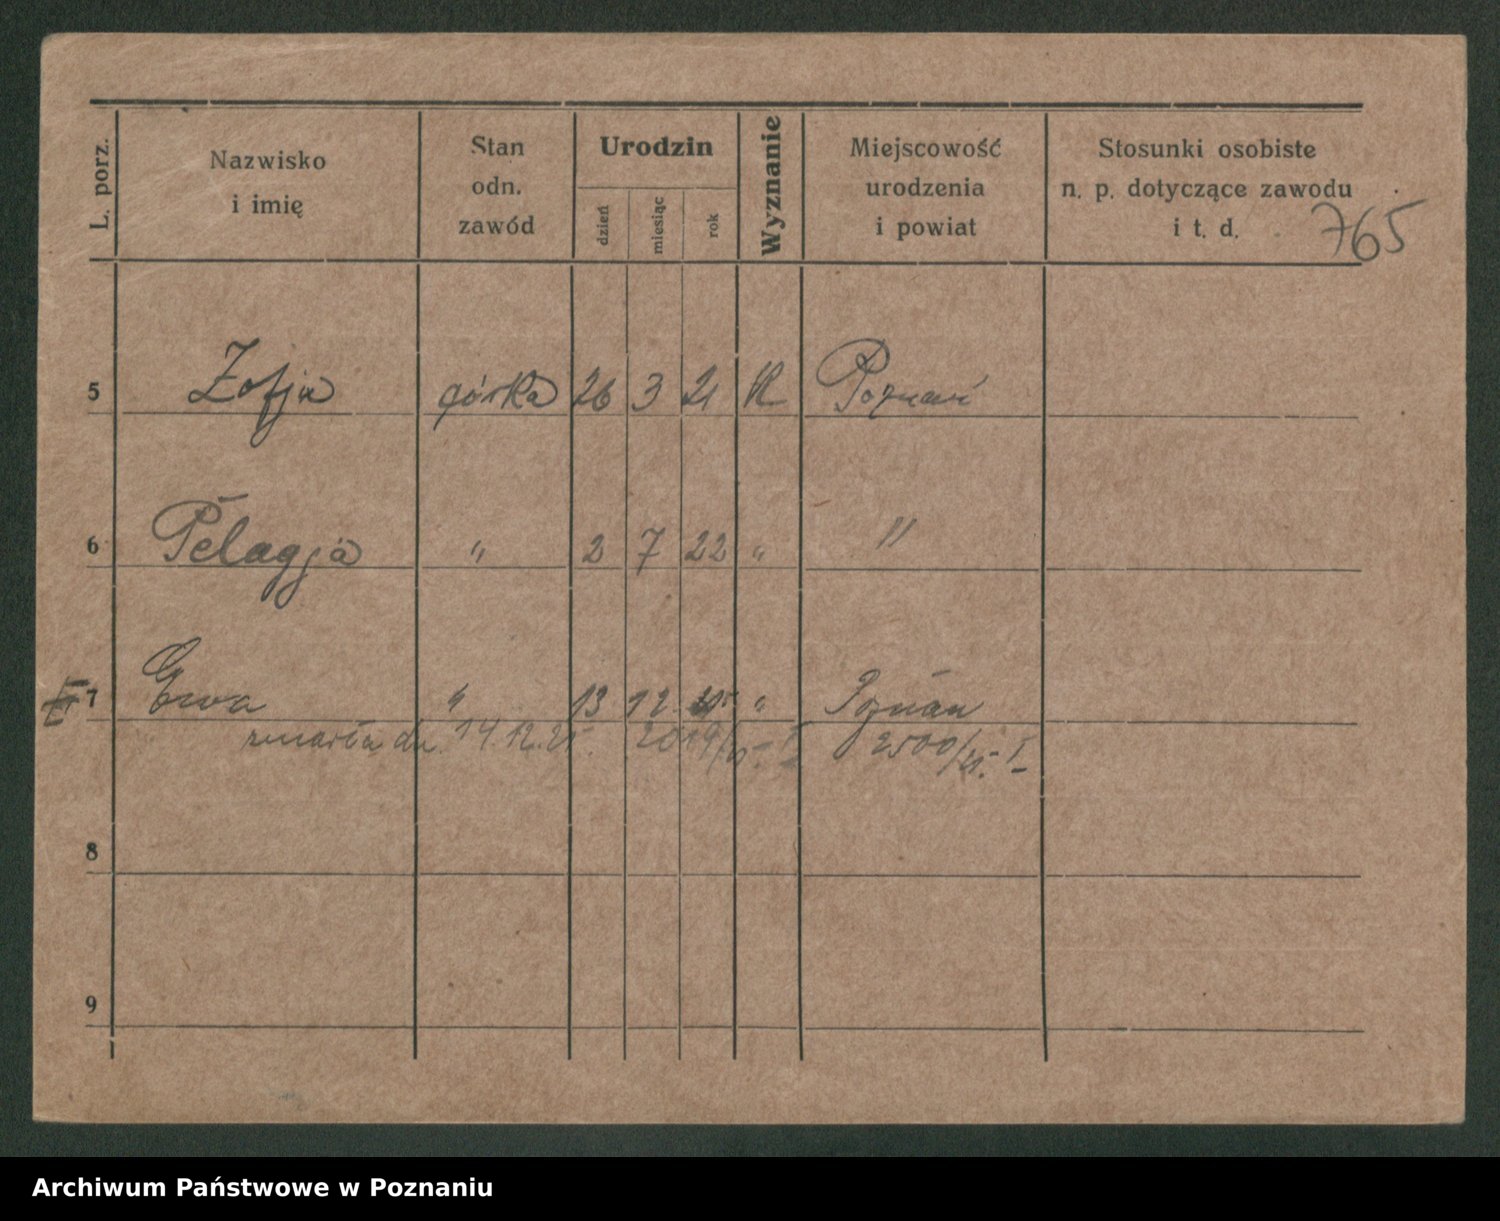 L. porz. Nazwisko i imię Stan odn. zawód Urodzin dzień miesiąc rok Wyznanie Miejscowość urodzenia i powiat Stosunki osobiste n. p. dotyczące zawodu i t. d.
765
5 Zofja córka 26 3 21 K Poznań
6 Pelagja " 2 7 22 " "
7 Ewa " 13 12 25 " Poznań
zmarła dn. 14.12.25. 2500/25. I
8
9
Archiwum Państwowe w Poznaniu